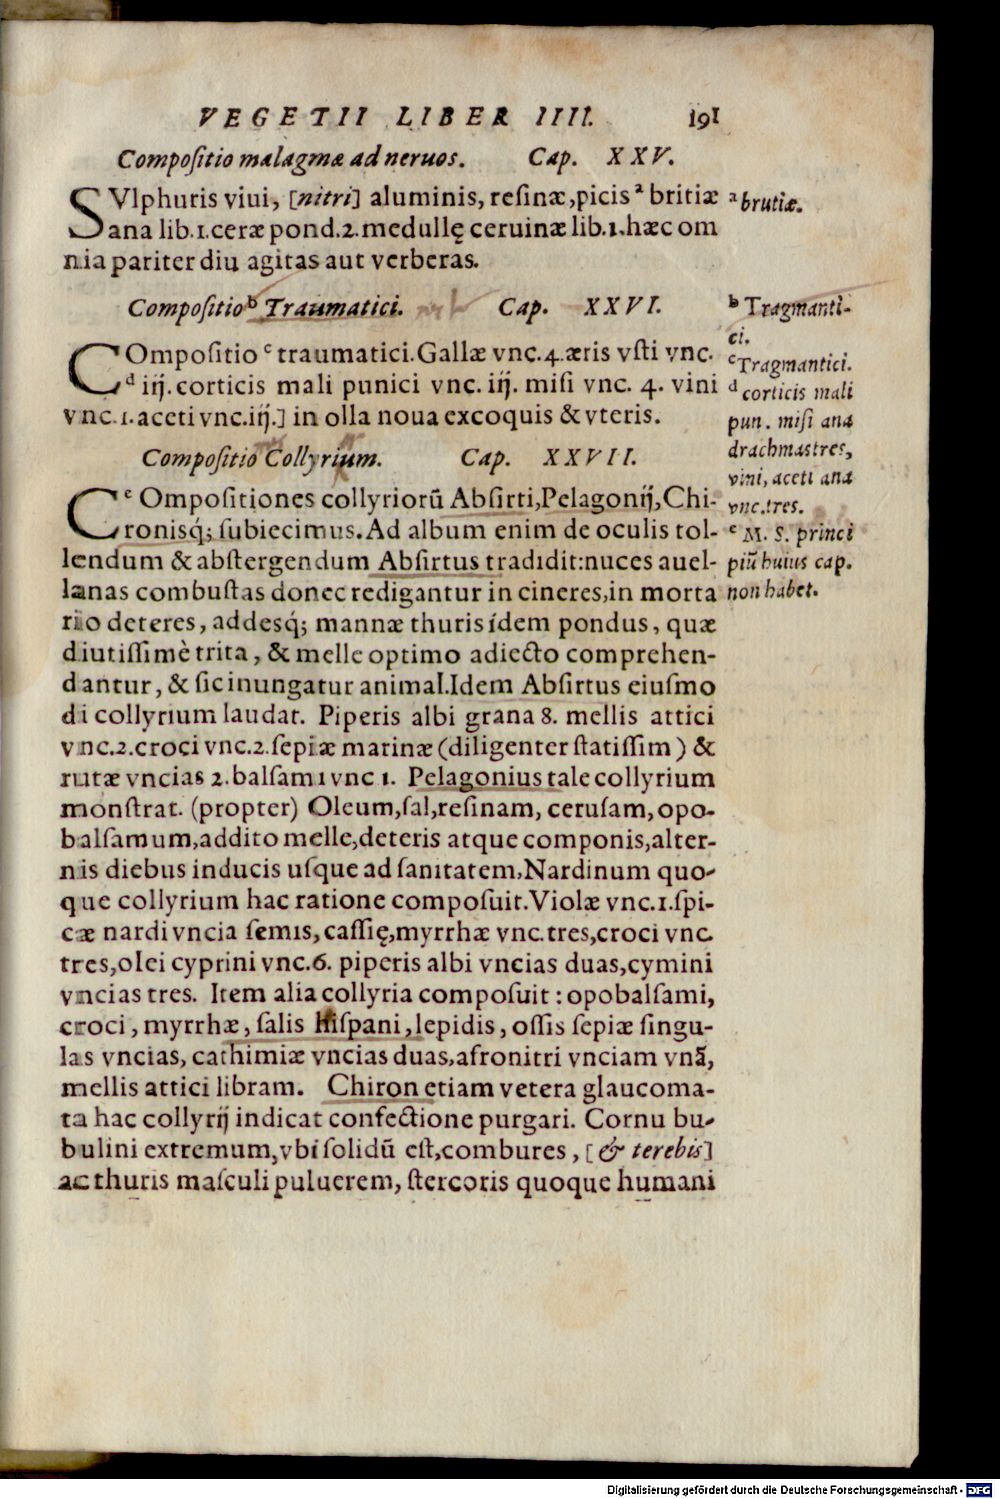 VEGETII LIBER IIII. 191
Compoſitio malagmæ ad neruos. Cap. XXV.
SVlphuris viui, [nitri] aluminis, reſinæ, picis ᵃ britiæ
ana lib.1. ceræ pond.2. medullę ceruinæ lib.1. hæc om
nia pariter diu agitas aut verberas.
ᵃ brutiæ.
Compoſitio ᵇ Traumatici. Cap. XXVI.
COmpoſitio ᶜ traumatici. Gallæ vnc.4. æris vſti vnc.
ᵈ iij. corticis mali punici vnc. iij. miſi vnc. 4. vini
vnc.1. aceti vnc.iij.] in olla noua excoquis & vteris.
ᵇ Tragmanti-
ci.
ᶜ Tragmantici.
ᵈ corticis mali
pun. miſi ana
drachmas tres,
vini, aceti ana
vnc.tres.
Compoſitio Collyrium. Cap. XXVII.
Cᵉ Ompoſitiones collyriorũ Abſirti, Pelagonij, Chi-
ronisq́; ſubiecimus. Ad album enim de oculis tol-
lendum & abſtergendum Abſirtus tradidit: nuces auel-
lanas combuſtas donec redigantur in cineres, in morta
rio deteres, addesq́; mannæ thuris ídem pondus, quæ
diutiſſimè trita, & melle optimo adiecto comprehen-
dantur, & ſic inungatur animal. Idem Abſirtus eiuſmo
di collyrium laudat. Piperis albi grana 8. mellis attici
vnc.2. croci vnc.2. ſepiæ marinæ (diligenter ſtatiſſim) &
rutæ vncias 2. balſami vnc 1. Pelagonius tale collyrium
monſtrat. (propter) Oleum, ſal, reſinam, ceruſam, opo-
balſamum, addito melle, deteris atque componis, alter-
nis diebus inducis uſque ad ſanitatem, Nardinum quo-
que collyrium hac ratione compoſuit. Violæ vnc.1. ſpi-
cæ nardi vncia ſemis, caſſię, myrrhæ vnc. tres, croci vnc.
tres, olei cyprini vnc.6. piperis albi vncias duas, cymini
vncias tres. Item alia collyria compoſuit: opobalſami,
croci, myrrhæ, ſalis Hiſpani, lepidis, oſſis ſepiæ ſingu-
las vncias, cathimiæ vncias duas, afronitri vnciam vnã,
mellis attici libram. Chiron etiam vetera glaucoma-
ta hac collyrij indicat confectione purgari. Cornu bu-
bulini extremum, vbi ſolidũ eſt, combures, [& terebis]
ac thuris maſculi puluerem, ſtercoris quoque humani
ᵉ M. S. princi
piũ huius cap.
non habet.
Digitalisierung gefördert durch die Deutsche Forschungsgemeinschaft - DFG